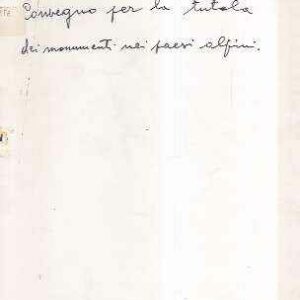 Convegno per la tutela
dei monumenti nei paesi alpini.